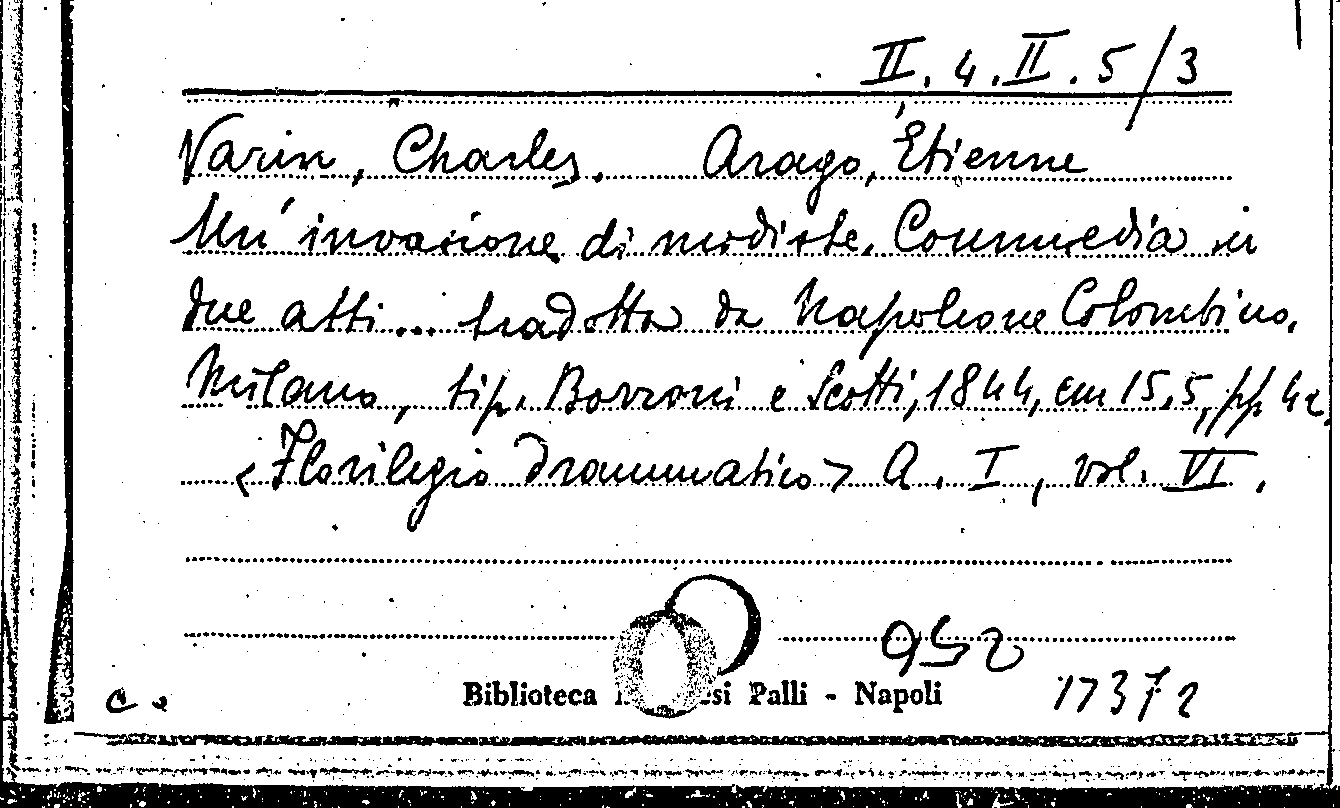 II. 4. II. 5/3
Varin, Charles. Arago, Etienne
Un' invasione di modiste. Commedia in
due atti... tradotta da Napoleone Colombino.
Milano, tip. Borroni e Scotti, 1844, cm 15,5, pp. 42.
<Florilegio drammatico> A. I, vol. VI.
952
Biblioteca Palli - Napoli
17372